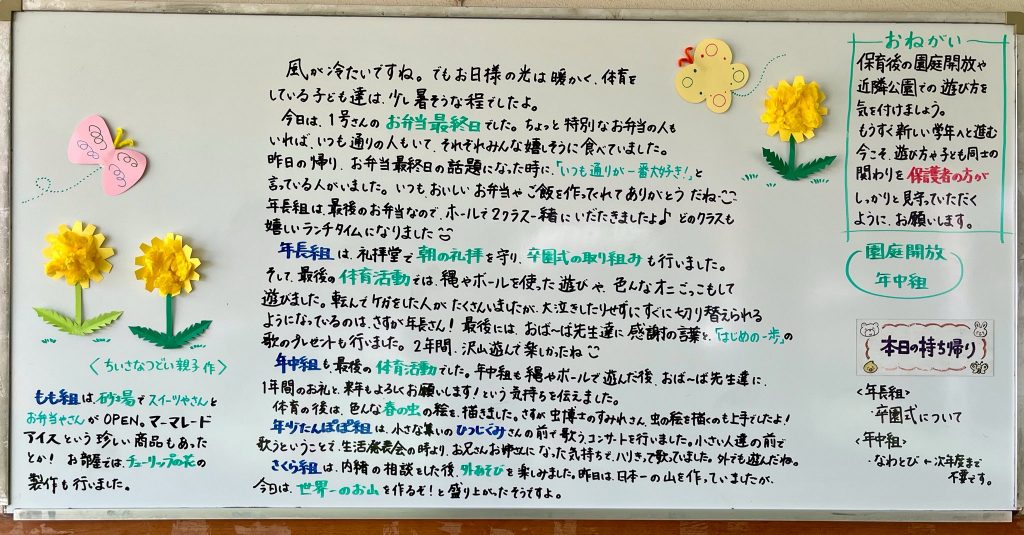 風が冷たいですね。でもお日様の光は暖かく、体育を
している子ども達は、少し暑そうな程でしたよ。
今日は、1号さんのお弁当最終日でした。ちょっと特別なお弁当の人も
いれば、いつも通りの人もいて、それぞれみんな嬉しそうに食べていました。
昨日の帰り、お弁当最終日の話題になった時に、「いつも通りが一番大好き!」と
言っている人がいました。いつもおいしいお弁当やご飯を作ってくれてありがとうだね
年長組は、最後のお弁当なので、ホールで2クラス一緒にいただきましたよ♪ どのクラスも
嬉しいランチタイムになりました
年長組は、礼拝堂で朝の礼拝を守り、卒園式の取り組みも行いました。
そして、最後の体育活動では、縄やボールを使った遊びや、色んなオニごっこもして
遊びました。転んでケガをした人がたくさんいましたが、大泣きしたりせずにすぐに切り替えられる
ようになっているのは、さすが年長さん! 最後には、おば〜ば先生達に感謝の言葉と、「はじめの一歩」の
歌のプレゼントも行いました。2年間、沢山遊んで楽しかったね
年中組も最後の体育活動でした。年中組も縄やボールで遊んだ後、おば〜ば先生達に、
1年間のお礼と来年もよろしくお願いします!という気持ちを伝えました。
体育の後は、色んな春の虫の絵を、描きました。さすが虫博士のすみれさん、虫の絵を描くのも上手でしたよ!
年少たんぽぽ組は、小さな集いのひつじぐみさんの前で歌うコンサートを行いました。小さい人達の前で
歌うということで、生活発表会の時より、お兄さんお姉さんになった気持ちで、ハリきって歌っていました。外でも遊んだね。
さくら組は、内緒の相談をした後、外あそびを楽しみました。昨日は、日本一の山を作っていましたが、
今日は、世界一のお山を作るぞ!と盛り上がったそうですよ。
<ちいさなつどい親子作>
もも組は、砂場でスイーツやさんと
お弁当やさんがOPEN。マーマレード
アイスという珍しい商品もあった
とか! お部屋では、チューリップの花の
製作も行いました。
おねがい
保育後の園庭開放や
近隣公園での遊び方を
気を付けましょう。
もうすぐ新しい学年へと進む
今こそ、遊び方や子ども同士の
関わりを保護者の方が
しっかりと見守っていただく
ように、お願いします。
園庭開放
年中組
本日の持ち帰り
<年長組>
・卒園式について
<年中組>
・なわとび ←次年度まで
不要です。